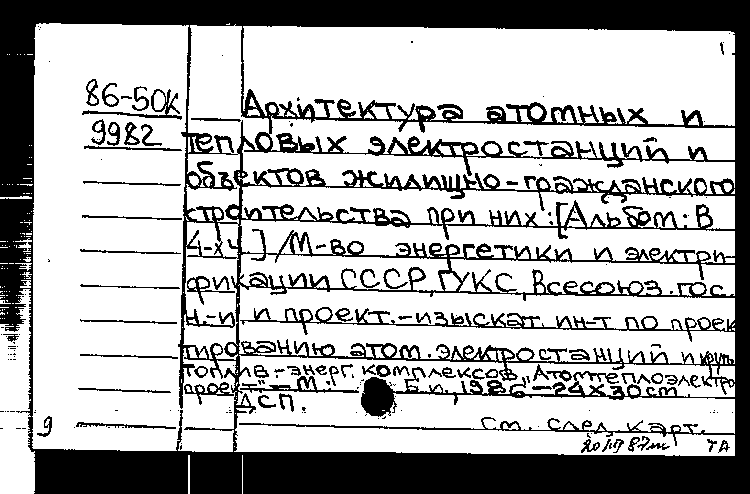 1
86-50К
9982
Архитектура атомных и
тепловых электростанций и
объектов жилищно-гражданского
строительства при них:[Альбом: В
4-х ч.]/М-во энергетики и электри-
фикации СССР, ГУКС, Всесоюз. гос.
н.-и. и проект.-изыскат. ин-т по проек
тированию атом. электростанций и круп.
топлив.-энерг. комплексов „Атомтеплоэлектро
проект". — М.: Б. и., 1986 — 24х30 cm.
ДСП.
См. след. карт.
9